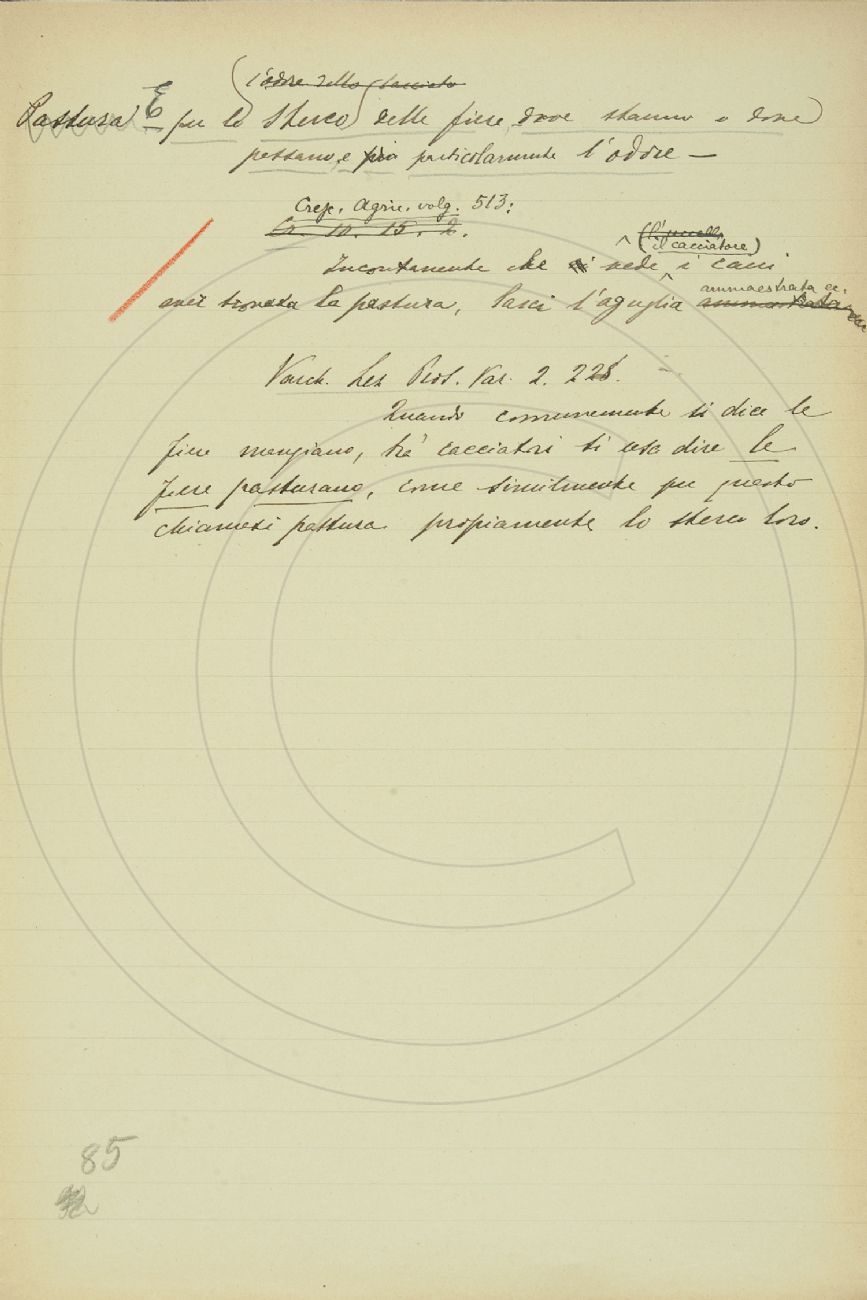 l'odore dello sterco
Pastura E per lo sterco delle fiere dove stanno o dove
passano, e più particolarmente l'odore —
Cresc. Agric. volg. 513:
Cr. 10. 15. 2.
(l'uccello
(il cacciatore)
Incontanente che vede i cani
ammaestrata ec.
aver trovata la pastura, lasci l'aguglia ammaestrata
Varch. Lez. Pros. Var. 2. 228.
Quando comunemente si dice le
fiere mangiano, tra' cacciatori si usa dire le
fiere pasturano, come similmente per questo
chiamasi pastura propiamente lo sterco loro.
85